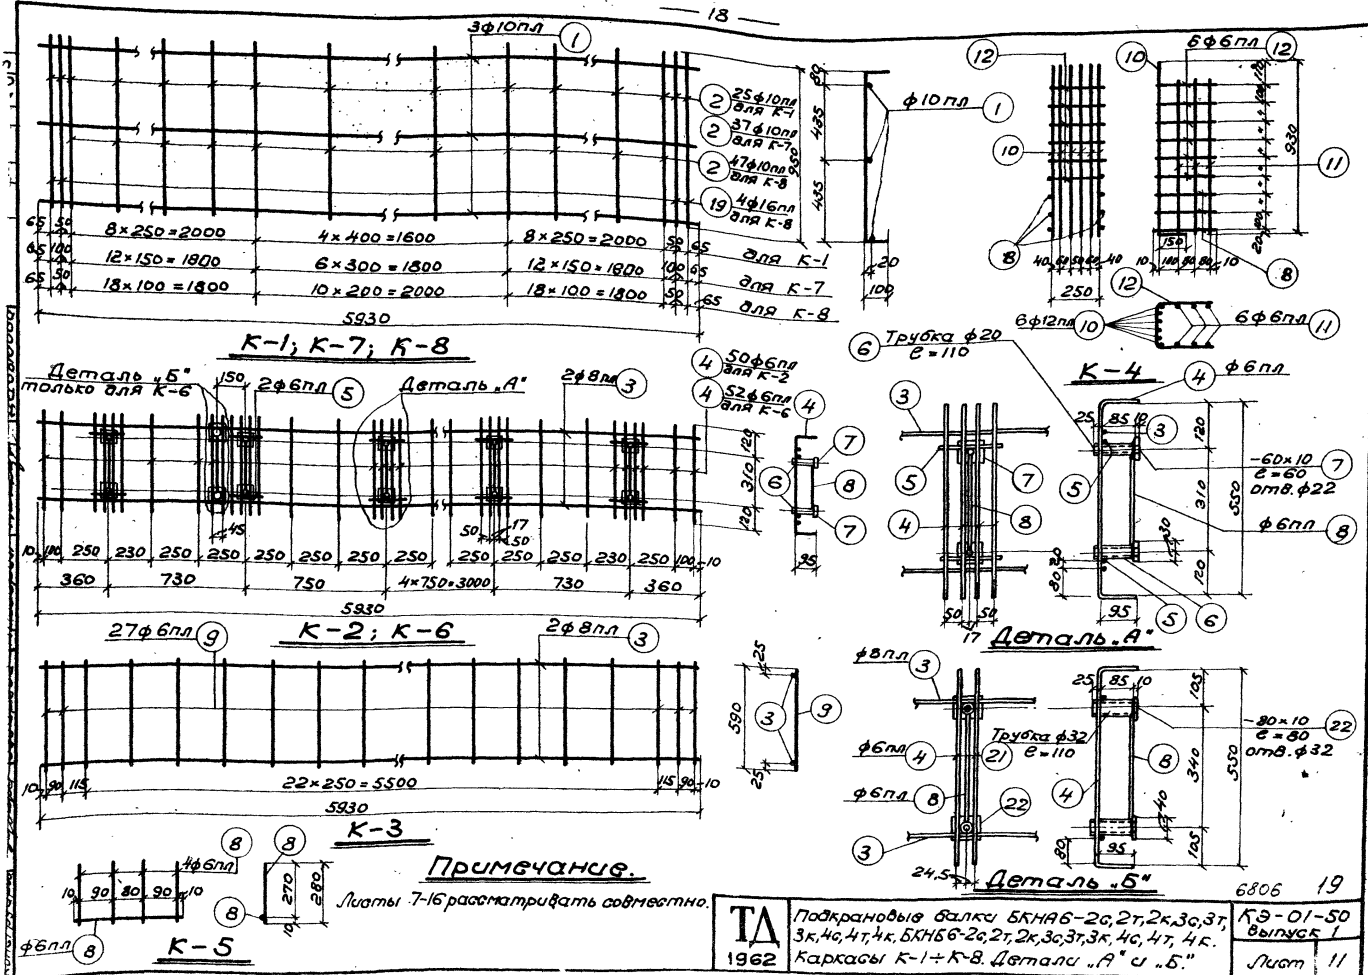 — 18 —
3ф10пл 1
2 25ф10пл для К-1
2 37ф10пл для К-7
2 47ф10пл для К-8
19 4ф16пл для К-8
950
65 50 8×250=2000 4×400=1600 8×250=2000 50 65 для К-1
65 100 12×150=1800 6×300=1800 12×150=1800 100 65 для К-7
65 50 18×100=1800 10×200=2000 18×100=1800 50 65 для К-8
5930
К-1; К-7; К-8
80
435
435
ф10пл 1
20
100
12
10
8
40 60 50 60 40
250
10
6ф6пл 12
930
11
150
10 100 80 80 10
8
12
6ф12пл 10
6ф6пл 11
К-4
Деталь „Б“
только для К-6
150
2ф6пл 5
Деталь „А“
2ф8пл 3
4 50ф6пл для К-2
4 52ф6пл для К-6
120
310
120
45
50 17 50
10 100 250 230 250 250 250 250 250 250 250 250 230 250 100 10
360 730 750 4×750=3000 730 360
5930
К-2; К-6
4
7
6
8
7
95
6 Трубка ф20
ℓ=110
3
5
7
4
8
50 50
17
Деталь „А“
4 ф6пл
25 85 10
3
120
310
120
550
-60×10
ℓ=60
отв. ф22
7
5
ф6пл 8
30
20
80
95
5
6
27ф6пл 9
2ф8пл 3
10 90 115 22×250=5500 115 90 10
5930
К-3
25
590
25
3
9
ф8пл 3
ф6пл 4
Трубка ф32
ℓ=110
21
ф6пл 8
22
3
24.5
Деталь „Б“
25 85 10
105
340
105
550
-80×10
ℓ=80
отв. ф32
22
8
4
40
80
95
8
4ф6пл
10 90 80 90 10
ф6пл 8
К-5
8
270
280
10
8
Примечание.
Листы 7-16 рассматривать совместно.
6806 19
ТД
1962
Подкрановые балки БКНА6-2с,2т,2к,3с,3т,
3к,4с,4т,4к, БКНБ6-2с,2т,2к,3с,3т,3к,4с,4т,4к.
Каркасы К-1÷К-8. Детали „А“ и „Б.“
КЭ-01-50
выпуск 1
Лист 11